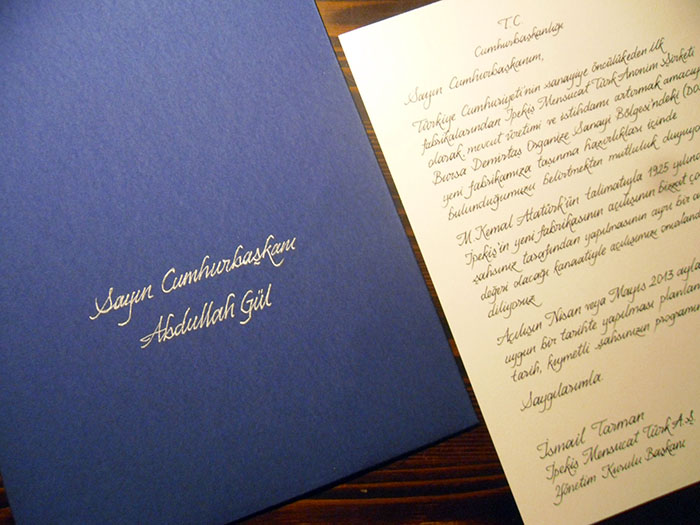 Sayın Cumhurbaşkanı
Abdullah Gül
T.C.
Cumhurbaşkanlığı
Sayın Cumhurbaşkanım,
Türkiye Cumhuriyeti'nin sanayiye öncülük eden ilk
fabrikalarından İpekiş Mensucat Türk Anonim Şirketi
olarak mevcut üretimi ve istihdamı artırmak amacıyla
Bursa Demirtaş Organize Sanayi Bölgesi'ndeki
yeni fabrikamıza taşınma hazırlıkları içinde
bulunduğumuzu belirtmekten mutluluk
M. Kemal Atatürk'ün talimatıyla 1925
İpekiş'in yeni fabrikasının açılışının bizzat
şahsınız tarafından yapılmasının ayrı bir
değeri olacağı kanaatiyle açılışımızı
diliyoruz.
Açılışın Nisan veya Mayıs 2013
uygun bir tarihte yapılması
tarih, kıymetli şahsınızın
Saygılarımla
İsmail Tarman
İpekiş Mensucat Türk A.Ş.
Yönetim Kurulu Başkanı